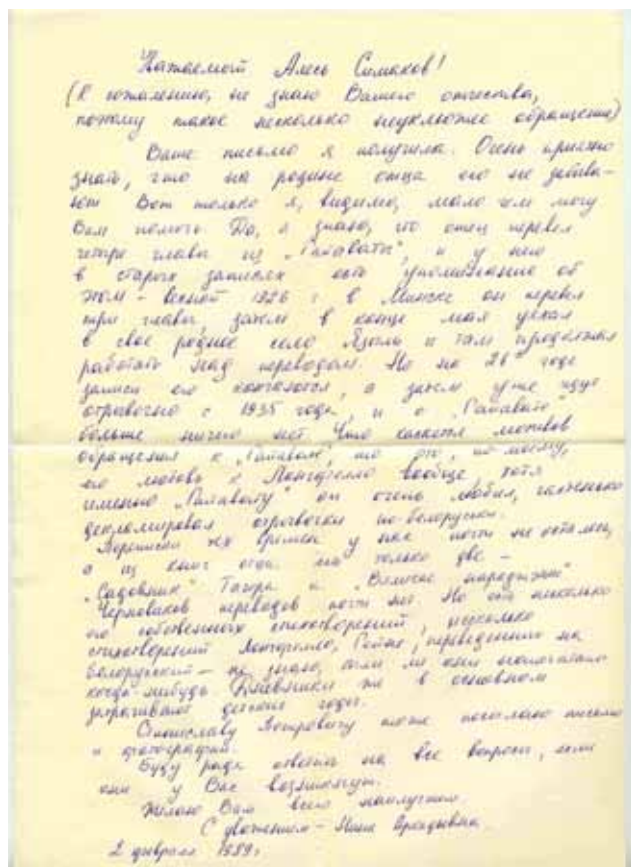 Уважаемый Алесь Симаков!
(К сожалению, не знаю Вашего отчества,
поэтому такое несколько неуклюжее обращение)
Ваше письмо я получила. Очень приятно
знать, что на родине отца его не забыва-
ют. Вот только я, видимо, мало чем могу
Вам помочь. Да, я знаю, что отец перевел
четыре главы из „Гайаваты", и у него
в старых записях есть упоминание об
этом – весной 1926 г. в Минске он перевел
три главы, затем в конце мая уехал
в свое родное село Языль и там продолжал
работать над переводом. Но на 26ᵐ годе
записи его кончаются, а затем уже идут
отрывочно с 1935 года, и о „Гайавате"
больше ничего нет. Что касается мотивов
обращения к „Гайавате", то это, по-моему,
его любовь к Лонгфелло вообще, хотя
именно „Гайавату" он очень любил, частенько
декламировал отрывочки по-белорусски.
Переписки тех времен у нас почти не осталось,
а из книг отца только две –
„Садовник" Тагора и
Черновиков переводов почти нет. Но есть несколько
его собственных стихотворений, несколько
стихотворений Лонгфелло, Гейне, переведенных на
белорусский – не знаю, были ли они напечатаны
когда-нибудь. Дневники же в основном
затрагивают детские годы.
Станиславу Петровичу тоже посылаю письмо
и фотографии.
Буду рада ответить на все вопросы, если
они у Вас возникнут.
Желаю Вам всего наилучшего.
С уважением – Нина Аркадьевна
2 февраля 1989 г.